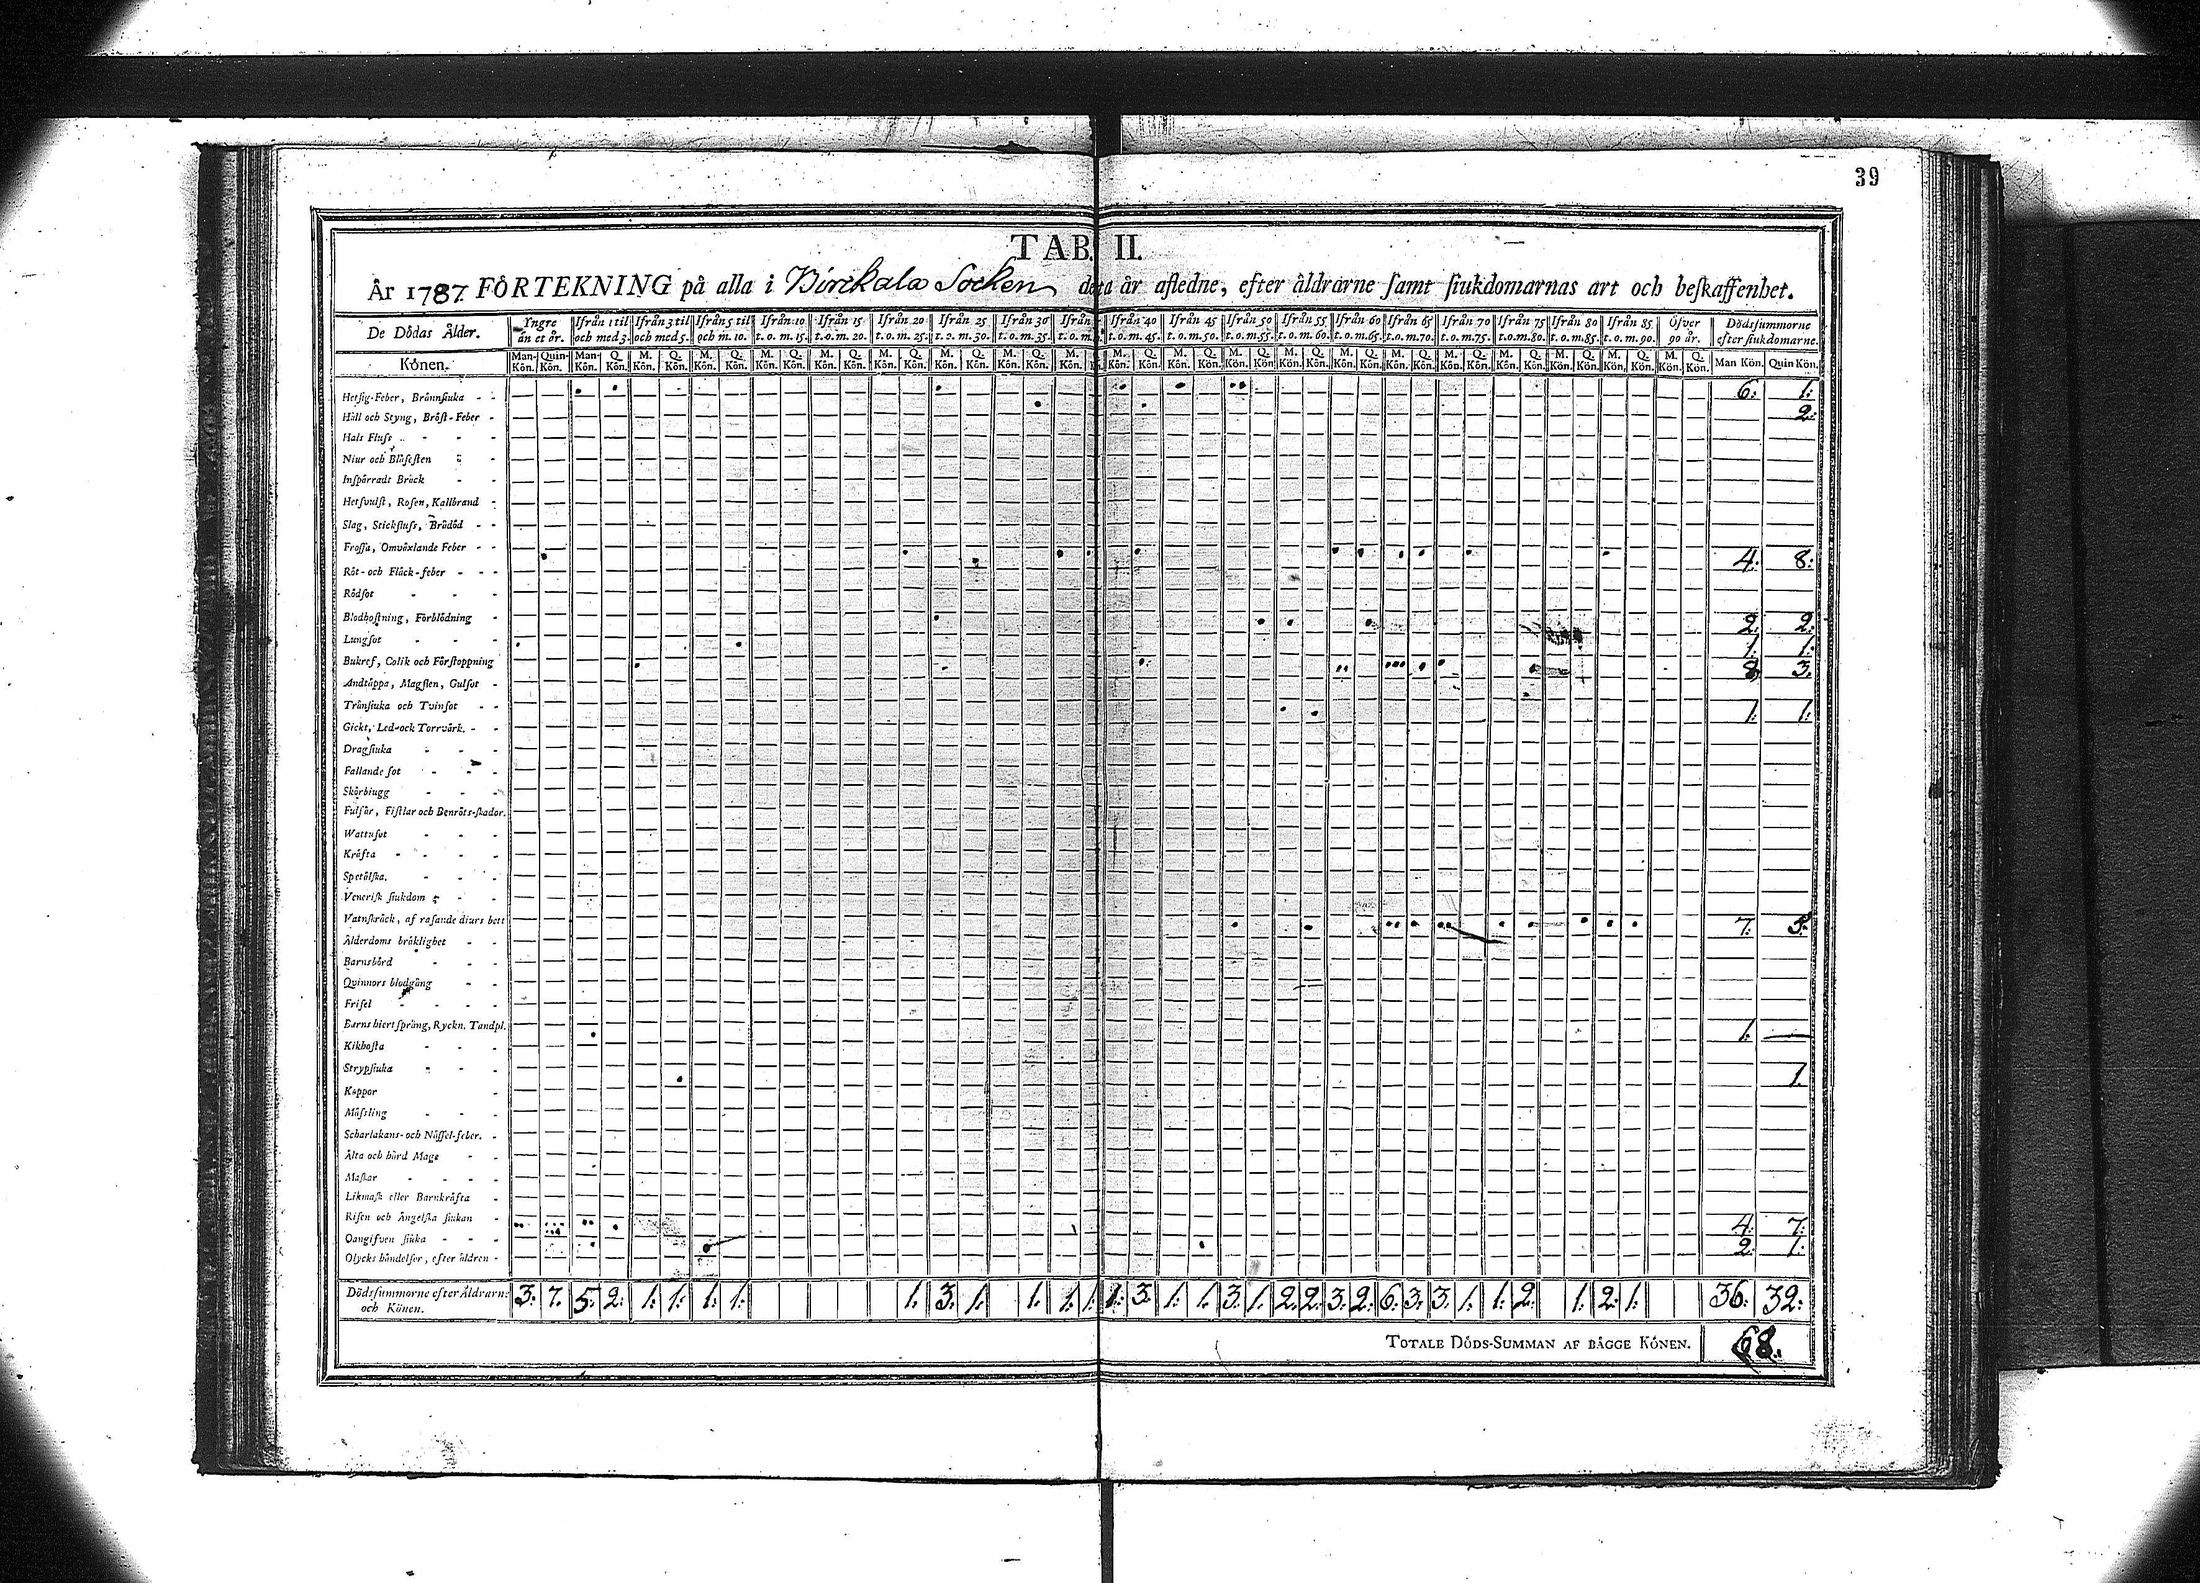 39
TAB. II.
År 1787. FÖRTEKNING på alla i Birckala Socken detta år afledne, efter åldrarne samt siukdomarnas art och beskaffenhet.
De Dödas Ålder. Yngre än et år. Ifrån 1 til och med 3. Ifrån 3 til och med 5. Ifrån 5 til och m. 10. Ifrån 10 t. o. m. 15. Ifrån 15 t. o. m. 20. Ifrån 20 t. o. m. 25. Ifrån 25 t. o. m. 30. Ifrån 30 t. o. m. 35. Ifrån t. o. m. Ifrån 40 t. o. m. 45. Ifrån 45 t. o. m. 50. Ifrån 50 t. o. m. 55. Ifrån 55 t. o. m. 60. Ifrån 60 t. o. m. 65. Ifrån 65 t. o. m. 70. Ifrån 70 t. o. m. 75. Ifrån 75 t. o. m. 80. Ifrån 80 t. o. m. 85. Ifrån 85 t. o. m. 90. Öfver 90 år. Dödssummorne efter siukdomarne.
Könen. Man-Kön. Quin-Kön. Man-Kön. Q. Kön. M. Kön. Q. Kön. M. Kön. Q. Kön. M. Kön. Q. Kön. M. Kön. Q. Kön. M. Kön. Q. Kön. M. Kön. Q. Kön. M. Kön. Q. Kön. M. Kön. M. Kön. Q. Kön. M. Kön. Q. Kön. M. Kön. Q. Kön. M. Kön. Q. Kön. M. Kön. Q. Kön. M. Kön. Q. Kön. M. Kön. Q. Kön. M. Kön. Q. Kön. M. Kön. Q. Kön. M. Kön. Q. Kön. M. Kön. Q. Kön. Man Kön. Quin Kön.
Hetsig-Feber, Brännsiuka - - 6: 1:
Håll och Styng, Bröst-Feber - 2:
Hals Fluss - - -
Niur och Blåsesten - -
Inspärradt Bråck - -
Hetsvulst, Rosen, Kallbrand -
Slag, Stickfluss, Brådöd - -
Frossa, Omväxlande Feber - - 4: 8:
Röt- och Fläck-feber - - -
Rödsot - - -
Blodhostning, Förblödning - 2: 2:
Lungsot - - - 1: 1:
Bukref, Colik och Förstoppning 8. 3.
Andtäppa, Magsten, Gulsot -
Trånsiuka och Tvinsot - - 1: 1:
Gickt, Led-ock Torrvärk. - -
Dragsiuka - - -
Fallande sot - - -
Skörbiugg - - -
Fulsår, Fistlar och Benröts-skador.
Wattusot - - -
Kräfta - - - -
Spetälska. - - -
Venerisk siukdom - -
Vatnskräck, af rasande diurs bett 7: 5:
Ålderdoms bräklighet - -
Barnsbörd - - -
Qvinnors blodgång - -
Frisel - - - -
Barns hiertsprång, Ryckn. Tandpl. 1: —
Kikhosta - - -
Strypsiuka - - - 1.
Koppor -
Mässling - - -
Scharlakans- och Nässel-feber. -
Älta och hård Mage - -
Maskar - - - -
Likmask eller Barnkräfta -
Risen och Ängelska siukan - 4: 7:
Oangifven siuka - - - 2: 1:
Olycks händelser, efter äldren -
Dödssummorne efter Åldrarn: och Könen. 3: 7: 5: 2: 1: 1: 1: 1: 1. 3. 1. 1. 1. 1. 1: 3: 1: 1. 3: 1. 2. 2: 3: 2: 6: 3: 3. 1. 1: 2. 1: 2: 1: 36: 32:
TOTALE DÖDS-SUMMAN AF BÄGGE KÖNEN. 68.